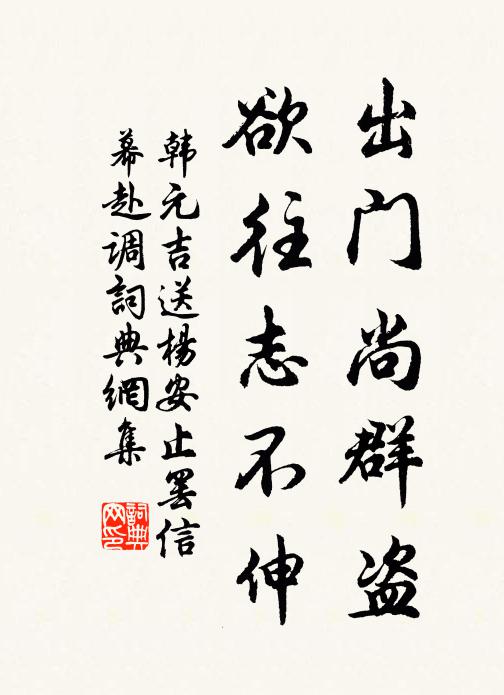 出门尚群盗
欲往志不伸
韩元吉送杨安止罢信
幕赴调词典網集
詞典網印